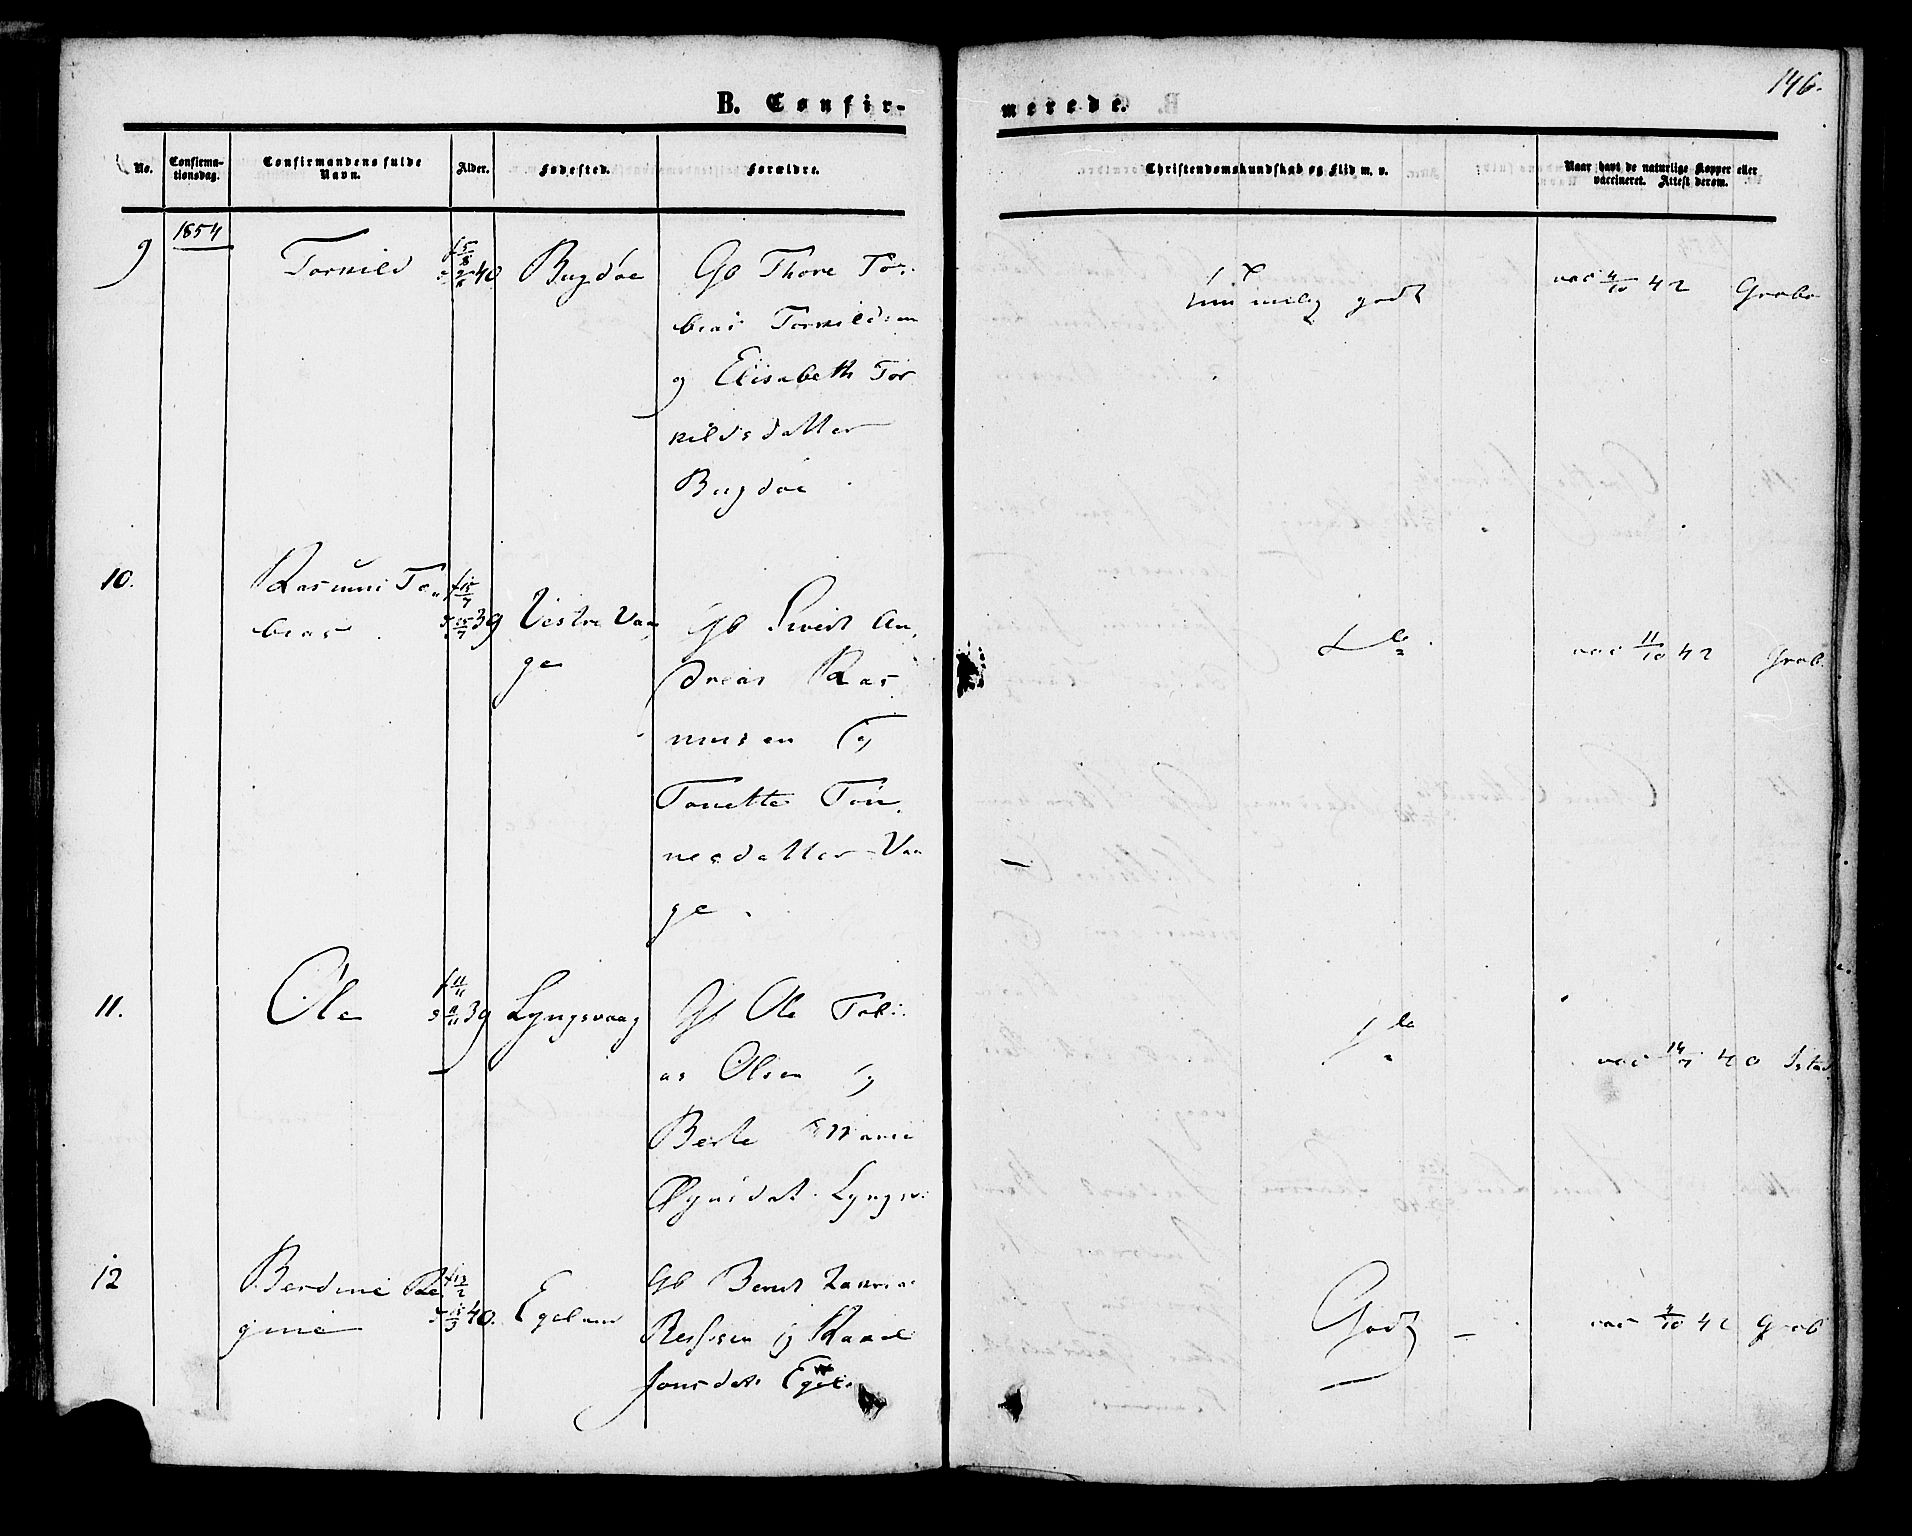 146.
B. Confir-
merede.
No.
Confirma-
tionsdag.
Confirmandens fulde
Navn.
Alder.
Fødested.
Forældre.
Christendomskundskab og Flid m. v.
Naar havt de naturlige Kopper eller
vaccineret. Attest derom.
1854
9
Torkild
f 5/8
40
Bugdøe
Gb Thore To-
bias Torkildsen
og Elisabeth Tor
kildsdatter
Bugdøe
godt
vac 4/10 42 Grabo
10.
Rasmus To-
bias
39
Vestre Vaa
ge
Gb Sivert An-
dreas Ras
musen og
Tonette Tøn-
nesdatter Vaa
ge.
vac 11/10 42 Grab.
11.
Ole
f 11/11
39
Lyngsvaag
Gb Ole Tobi-
as Olsen og
Berte Marie
Lyngsv:
vac 40
12
Berdine Re-
gine
40.
Egeland
Gb Bernt
og
Jonsdat. Egel.
Godt
vac 4/10 42 Grab